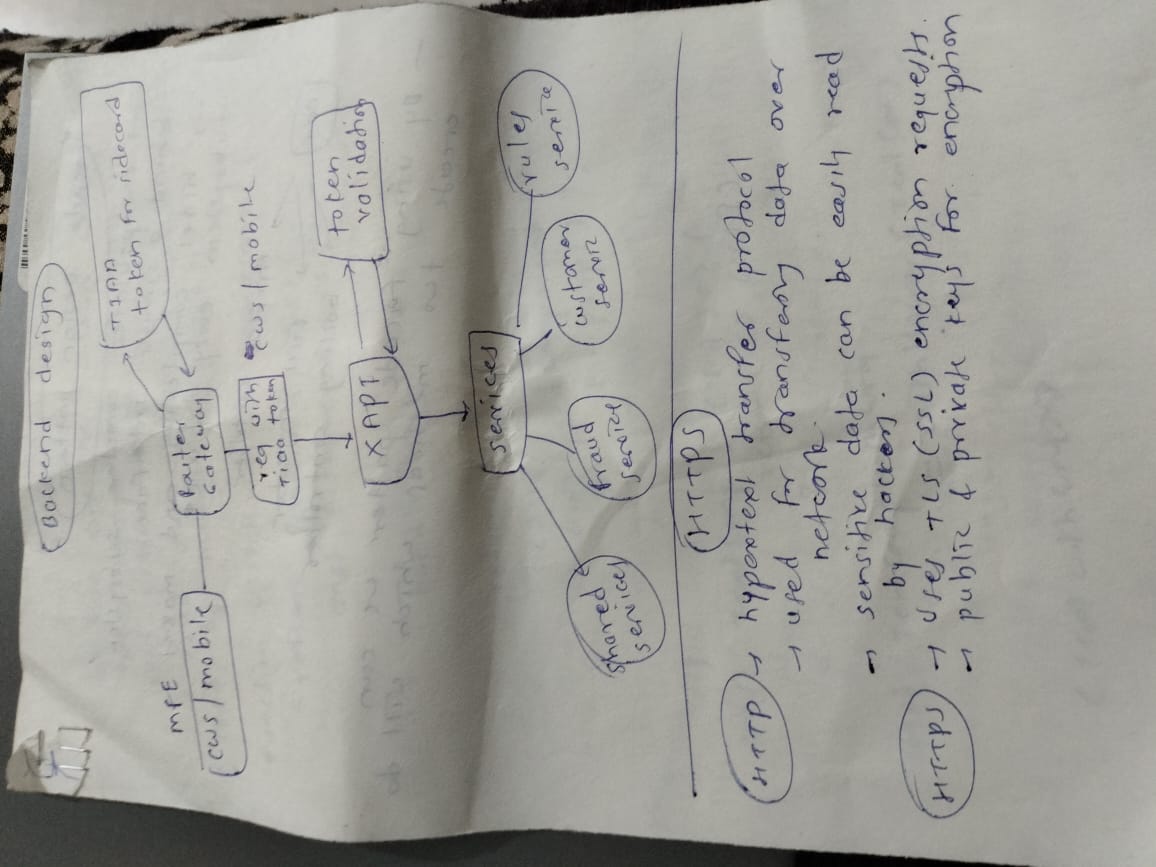 Backend design
MFE
cws/mobile
Gateway
TIAA
token for
req with
Tiaa token
cws/mobile
XAPI
token
validation
services
shared
services
fraud
service
customer
servic
rules
service
HTTPS
HTTP → hypertext transfer protocol
→ used for transfering data over
network.
→ sensitive data can be easily read
by hackers.
HTTPS → uses TLS (SSL) encryption requests.
→ public & private keys for encryption